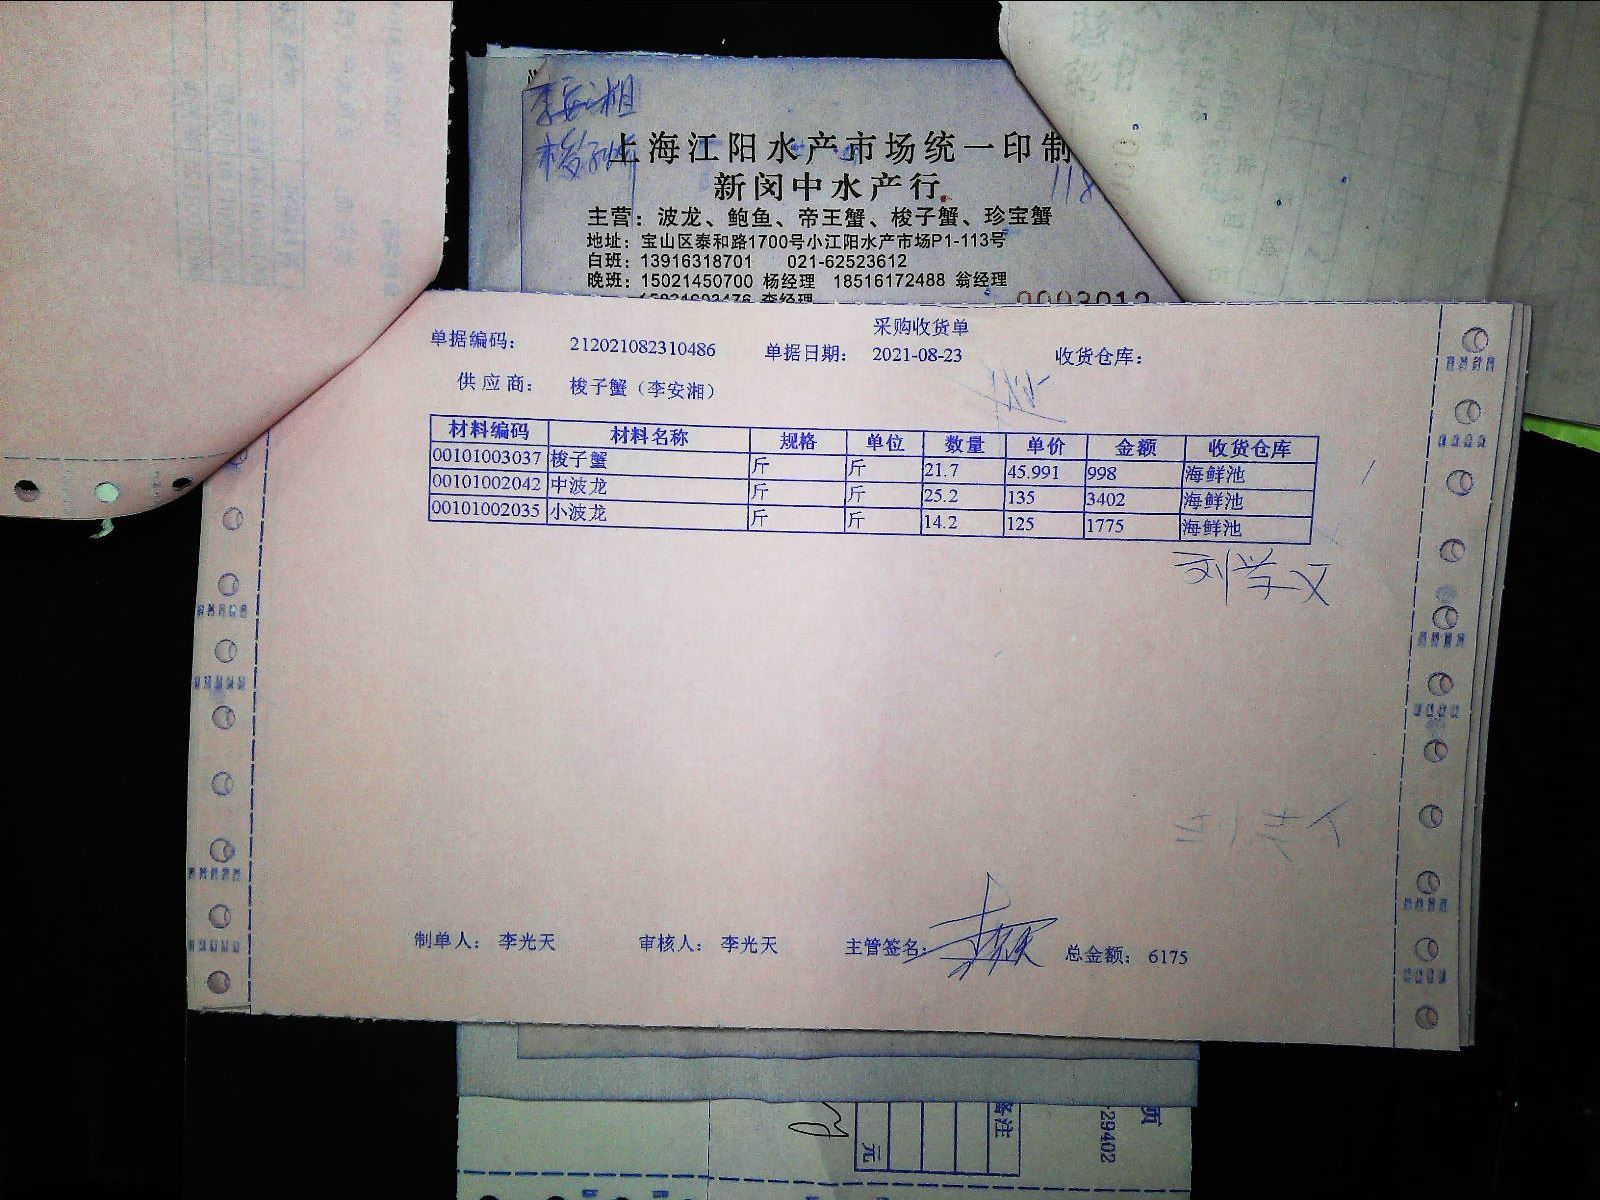 李安湘
梭子蟹
上海江阳水产市场统一印制
新闵中水产行
118
主营：波龙、鲍鱼、帝王蟹、梭子蟹、珍宝蟹
地址：宝山区泰和路1700号小江阳水产市场P1-113号
白班：13916318701 021-62523612
晚班：15021450700 杨经理 18516172488 翁经理
15021603476 李经理
0003012
采购收货单
单据编码： 212021082310486 单据日期： 2021-08-23 收货仓库：
供应商： 梭子蟹（李安湘）
材料编码 材料名称 规格 单位 数量 单价 金额 收货仓库
00101003037 梭子蟹 斤 斤 21.7 45.991 998 海鲜池
00101002042 中波龙 斤 斤 25.2 135 3402 海鲜池
00101002035 小波龙 斤 斤 14.2 125 1775 海鲜池
刘学义
制单人： 李光天 审核人： 李光天 主管签名： 总金额： 6175
备注
元
页
29402